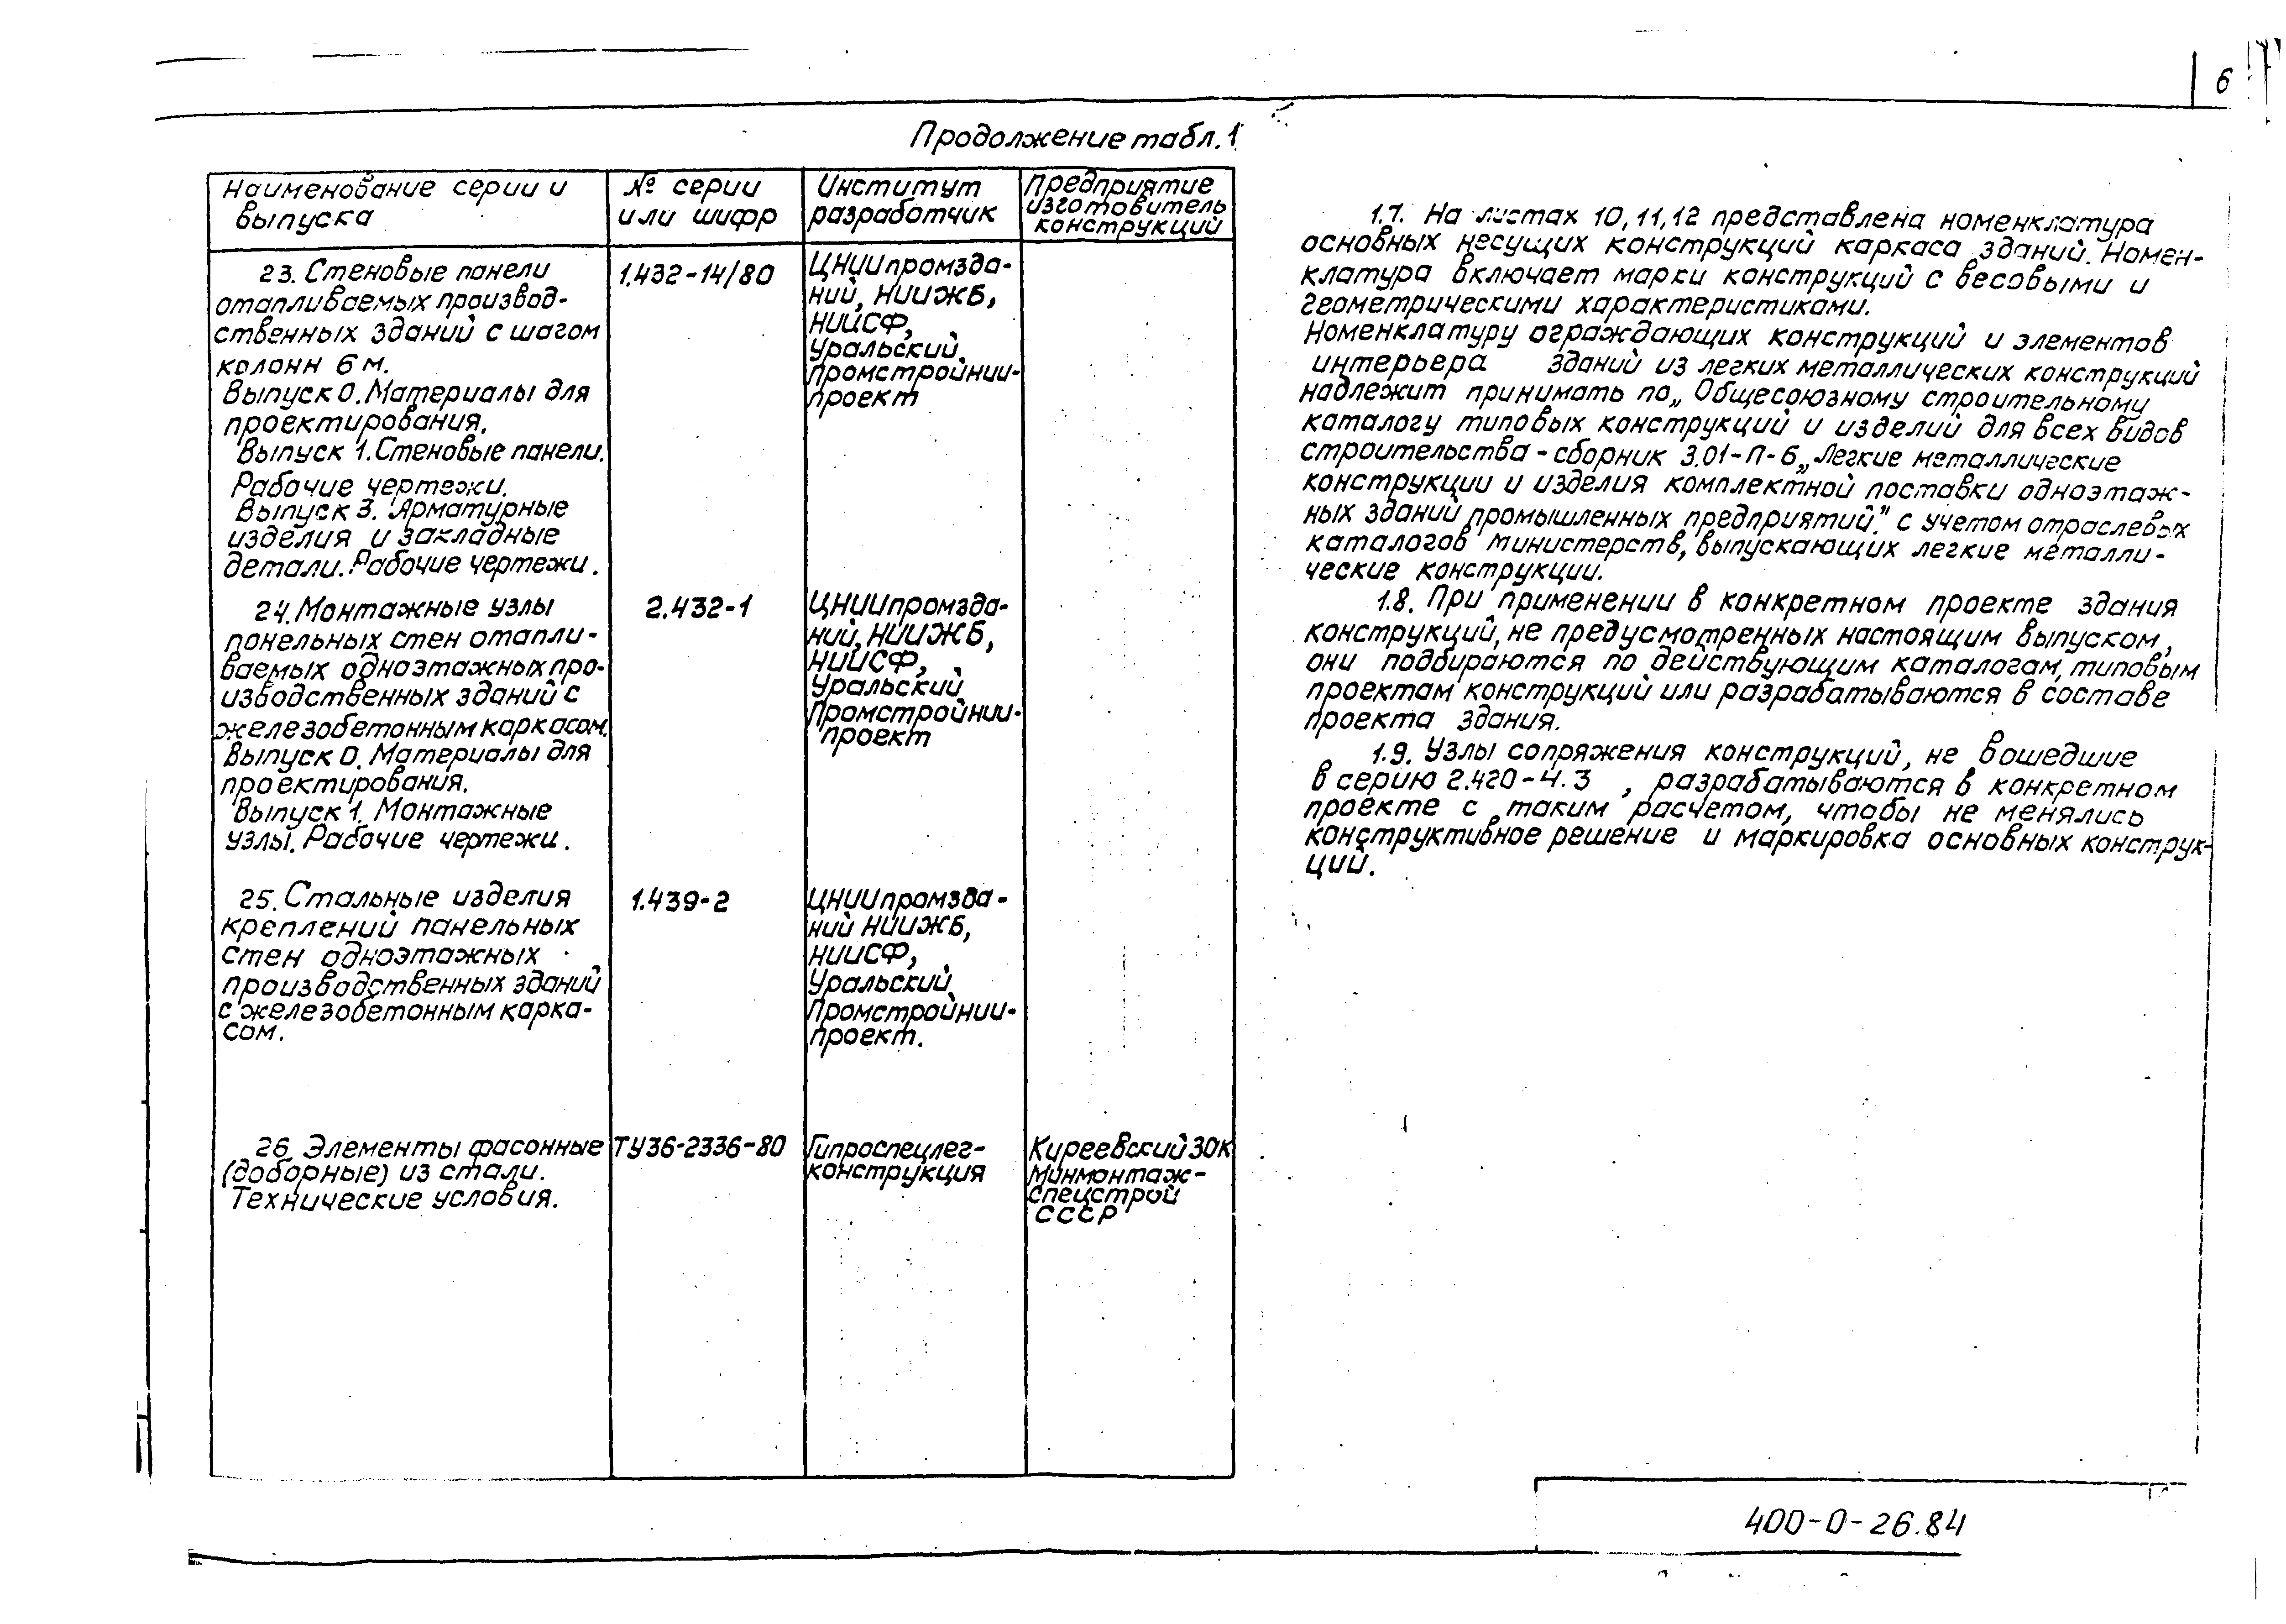 6
Продолжение табл. 1
Наименование серии и
выпуска
№ серии
или шифр
Институт
разработчик
Предприятие
изготовитель
конструкций
23. Стеновые панели
отапливаемых производ-
ственных зданий с шагом
колонн 6 м.
Выпуск 0. Материалы для
проектирования.
Выпуск 1. Стеновые панели.
Рабочие чертежи.
Выпуск 3. Арматурные
изделия и закладные
детали. Рабочие чертежи.
1.432-14/80
ЦНИИпромзда-
ний, НИИЖБ,
НИИСФ,
Уральский
промстройнии-
проект
24. Монтажные узлы
панельных стен отапли-
ваемых одноэтажных про-
изводственных зданий с
железобетонным каркасом.
Выпуск 0. Материалы для
проектирования.
Выпуск 1. Монтажные
узлы. Рабочие чертежи.
2.432-1
ЦНИИпромзда-
ний, НИИЖБ,
НИИСФ,
Уральский
Промстройнии-
проект
25. Стальные изделия
креплений панельных
стен одноэтажных
производственных зданий
с железобетонным карка-
сом.
1.439-2
ЦНИИпромзда-
ний НИИЖБ,
НИИСФ,
Уральский
Промстройнии-
проект.
26. Элементы фасонные
(доборные) из стали.
Технические условия.
ТУ36-2336-80
Гипроспецлег-
конструкция
Киреевский ЗОК
Минмонтаж-
спецстрой
СССР
1.7. На листах 10, 11, 12 представлена номенклатура
основных несущих конструкций каркаса зданий. Номен-
клатура включает марки конструкций с весовыми и
геометрическими характеристиками.
Номенклатуру ограждающих конструкций и элементов
интерьера зданий из легких металлических конструкций
надлежит принимать по „Общесоюзному строительному
каталогу типовых конструкций и изделий для всех видов
строительства - сборник 3.01-П-6 „Легкие металлические
конструкции и изделия комплектной поставки одноэтаж-
ных зданий промышленных предприятий." с учетом отраслевых
каталогов министерств, выпускающих легкие металли-
ческие конструкции.
1.8. При применении в конкретном проекте здания
конструкций, не предусмотренных настоящим выпуском,
они подбираются по действующим каталогам, типовым
проектам конструкций или разрабатываются в составе
проекта здания.
1.9. Узлы сопряжения конструкций, не вошедшие
в серию 2.420-4.3 , разрабатываются в конкретном
проекте с таким расчетом, чтобы не менялись
конструктивное решение и маркировка основных конструк-
ций.
400-0-26.84